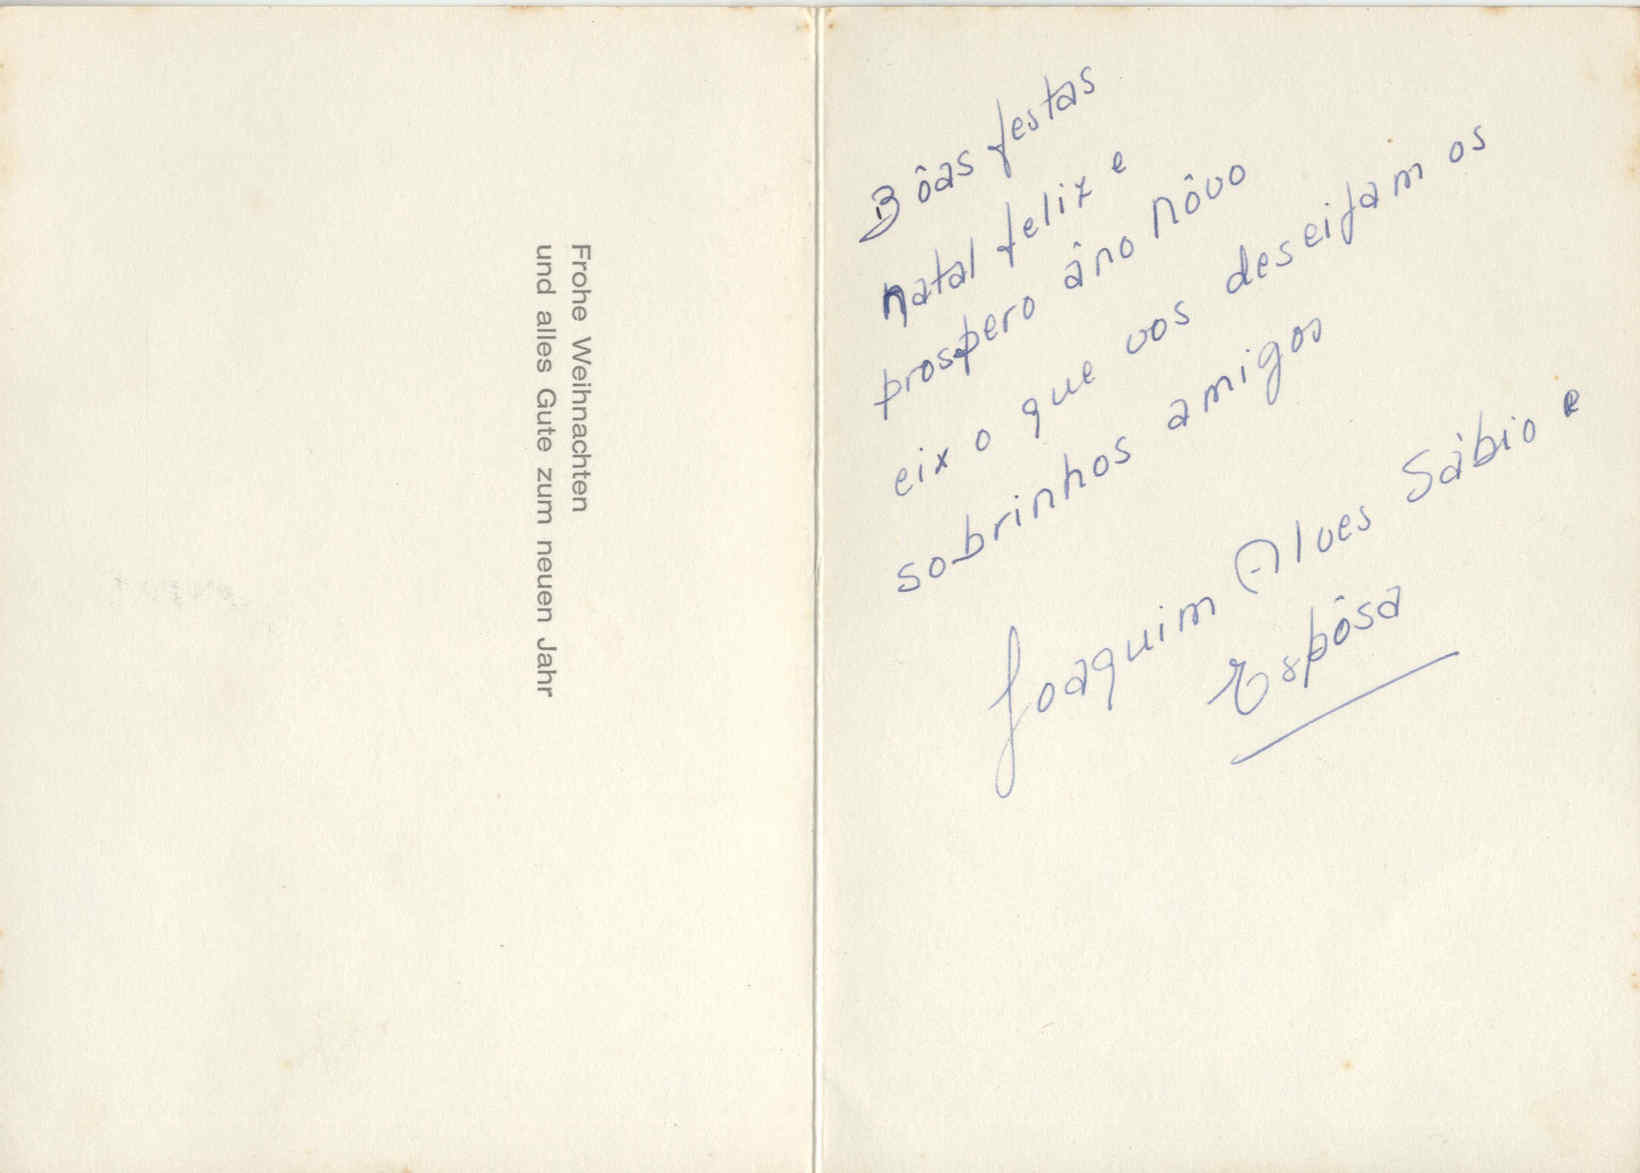 Frohe Weihnachten
und alles Gute zum neuen Jahr
Bôas festas
natal felix e
prospero âno nôvo
eix o que vos deseijam os
sobrinhos amigos
Joaquim Alves Sábio e
Espôsa